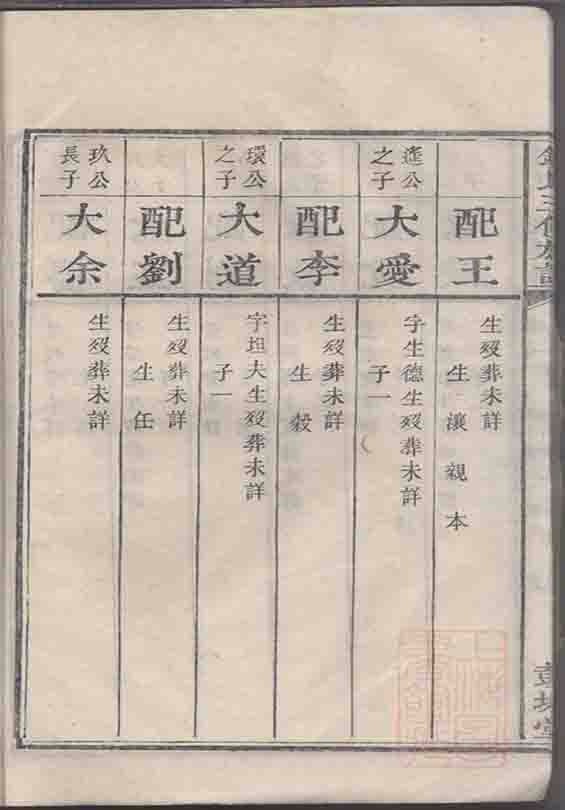 配王
生歿葬未詳
生瀼親本
逵公
之子
大愛
字生德生歿葬未詳
子一
配李
生歿葬未詳
生毅
環公
之子
大道
字坦夫生歿葬未詳
子一
配劉
生歿葬未詳
生任
玖公
長子
大余
生歿葬未詳